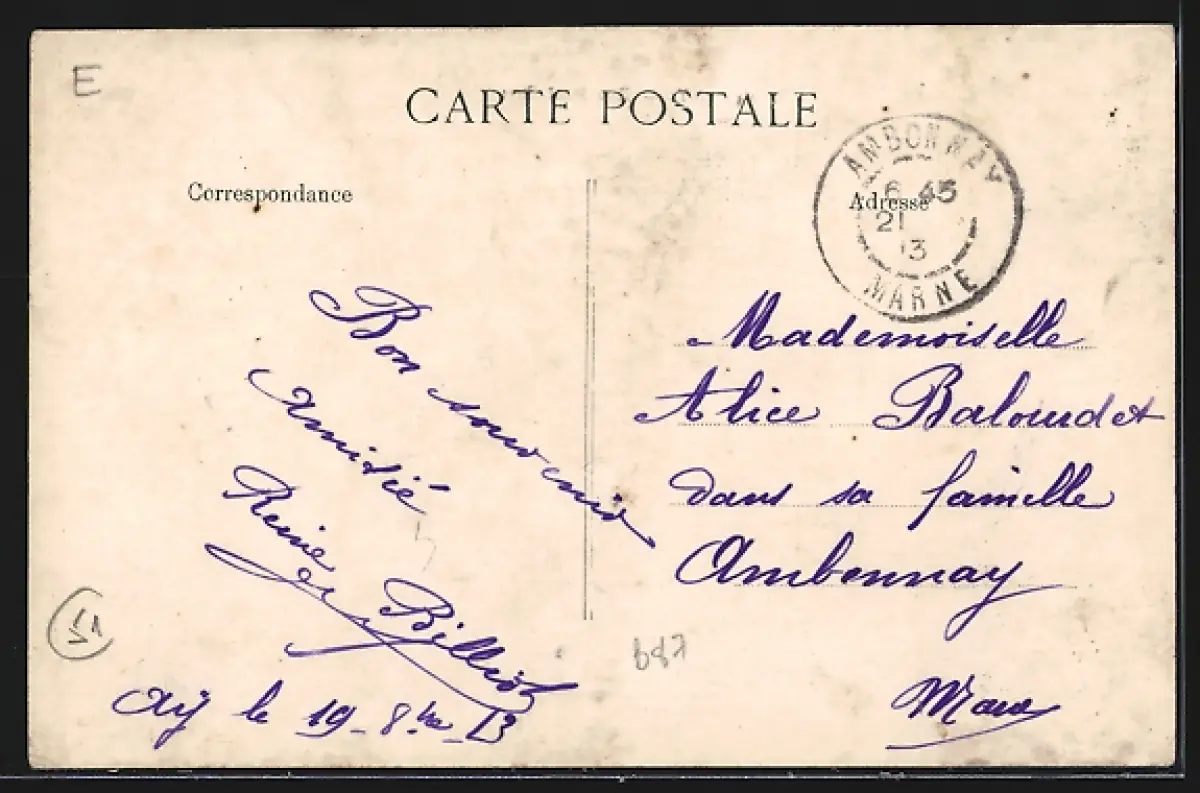 E
CARTE POSTALE
Correspondance
Adresse
AMBONNAY
6 45
21
13
MARNE
Bon souvenir
Amitié
Reine
Billiot
Aÿ le 19-8bre-13
Mademoiselle
Alice Baloudet
dans sa famille
Ambonnay
Marne
51
687